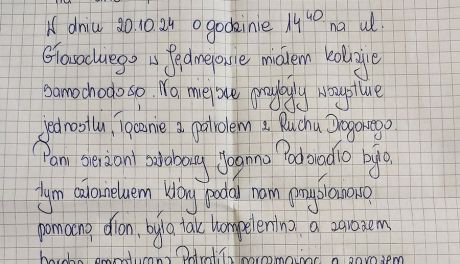 W dniu 20.10.24 o godzinie 14⁴⁰ na ul.
Głowackiego w Jędrzejowie miałem kolizję
samochodową. Na miejsce przybyły wszystkie
jednostki, łącznie z patrolem z Ruchu Drogowego.
Pani sierżant sztabowy Joanna Podsiadło była
tym człowiekiem który podał nam przysłowiową
pomocną dłoń, była tak kompetentna, a zarazem
bardzo empatyczna. Potrafiła a zarazem